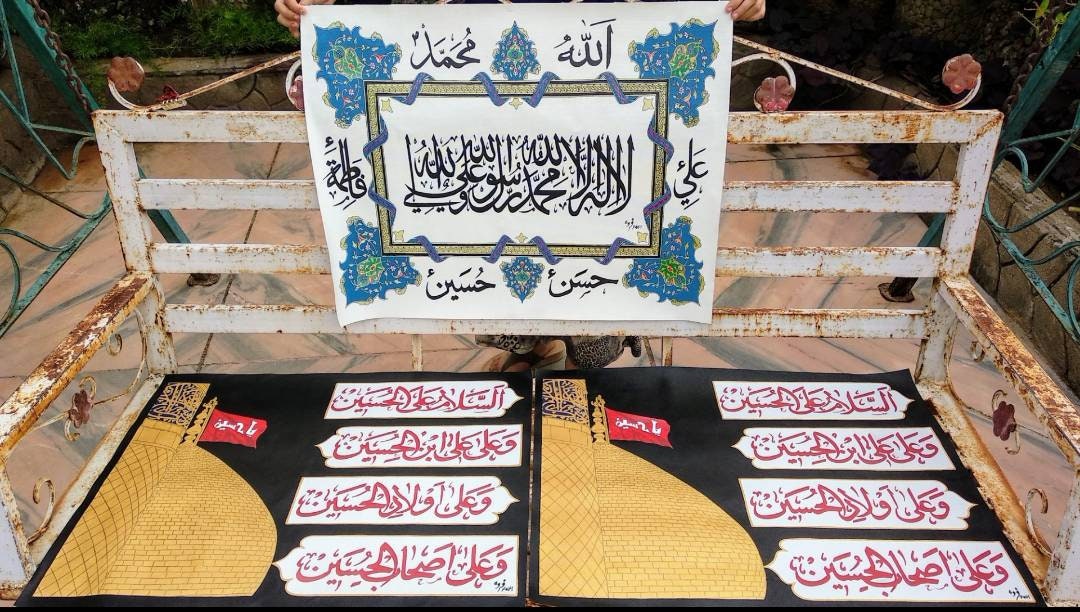 اَللّٰهُ مُحَمَّدٌ
عَلِيٌ
لا اله الا الله محمد رسول الله علي ولي الله
فَاطِمَةُ
حَسَنٌ حُسَينٌ
يا حسين
اَلسَّلامُ عَلَى الحُسَين
وَعَلى عَلى ابنِ الحُسَين
وَعَلى اَولادِ الحُسَين
وَعَلى اَصحابِ الحُسَين
يا حسين
اَلسَّلامُ عَلَى الحُسَين
وَعَلى عَلى ابنِ الحُسَين
وَعَلى اَولادِ الحُسَين
وَعَلى اَصحابِ الحُسَين